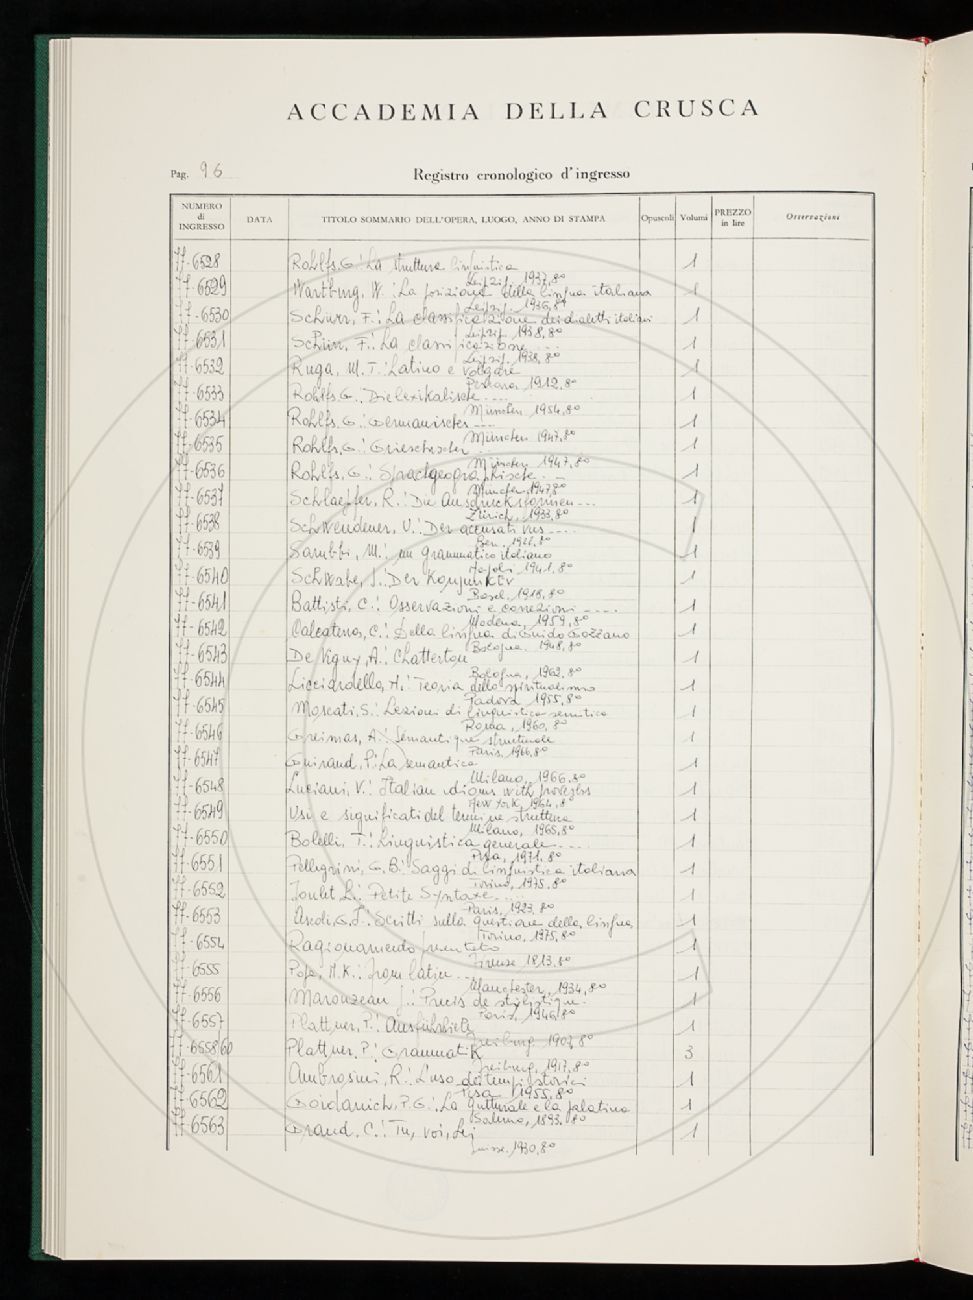 ACCADEMIA DELLA CRUSCA
Pag. 96
Registro cronologico d'ingresso
NUMERO di INGRESSO DATA TITOLO SOMMARIO DELL'OPERA, LUOGO, ANNO DI STAMPA Opuscoli Volumi PREZZO in lire Osservazioni
6528 Rohlfs, G.: La struttura linguistica 1
Leipzig, 1937, 8°
6529 Wartburg, W.: La posizione della lingua italiana 1
Leipzig, 1936, 8°
6530 Schürr, F.: La classificazione dei dialetti italiani 1
Leipzig, 1938, 8°
6531 Schürr, F.: La classificazione .... 1
Leipzig, 1938, 8°
6532 Ruga, M. T.: Latino e volgare 1
1912, 8°
6533 Rohlfs, G.: Die lexikalische .... 1
München, 1954, 8°
6534 Rohlfs, G.: Germanisches ---- 1
München 1947, 8°
6535 Rohlfs, G.: Griechischer 1
München 1947, 8°
6536 Rohlfs, G.: Sprachgeographische .. 1
München, 1947, 8°
6537 Schlaepfer, R.: Die Ausdrucksformen --- 1
Zürich, 1933, 8°
6538 Schwendener, U.: Der accusativus ---- 1
Bern, 8°
6539 Sansbbi, M.: un grammatico italiano 1
Napoli 1941, 8°
6540 Schwabe, J.: Der Konjunktiv 1
Basel, 1918, 8°
6541 Battisti, C.: Osservazioni e correzioni ---- 1
Modena, 1959, 8°
6542 Calcaterra, C.: Della lingua di Guido Gozzano 1
Bologna, 1948, 8°
6543 De Vigny, A.: Chatterton 1
Bologna, 1962, 8°
6544 Licciardello, N.: Teoria dello spiritualismo 1
Padova 1955, 8°
6545 Moscati, S.: Lezioni di linguistica semitica 1
Roma, 1960, 8°
6546 Greimas, A.: Semantique structurale 1
Paris, 1966, 8°
6547 Guiraud, P.: La semantica 1
Milano, 1966, 8°
6548 Luciani, V.: Italian idioms with proverbs 1
New York, 1964, 8°
6549 Usi e significati del termine struttura 1
Milano, 1965, 8°
6550 Bolelli, T.: Linguistica generale ---- 1
Pisa, 1971, 8°
6551 Pellegrini, G. B.: Saggi di linguistica italiana 1
Torino, 1975, 8°
6552 Petite Syntaxe ... 1
Paris, 1923, 8°
6553 Ascoli, G. I.: Scritti sulla questione della lingua 1
Torino, 1975, 8°
6554 Ragionamento 1
Firenze 1813, 8°
6555 Pope, M. K.: from latin --- 1
Manchester, 1934, 8°
6556 Marouzeau J.: Precis de stylistique. 1
Paris, 1946, 8°
6557 Plattner, P.: Ausführliche 1
Freiburg 1907, 8°
6558/60 Plattner, P.: Grammatik 3
Freiburg, 1917, 8°
6561 Ambrosini, R.: L'uso dei tempi storici 1
Pisa 1955, 8°
6562 Goidanich, P. G.: La gutturale e la palatina 1
Salerno, 1893, 8°
6563 Grand, C.: Tu, voi, Lei 1
1930, 8°